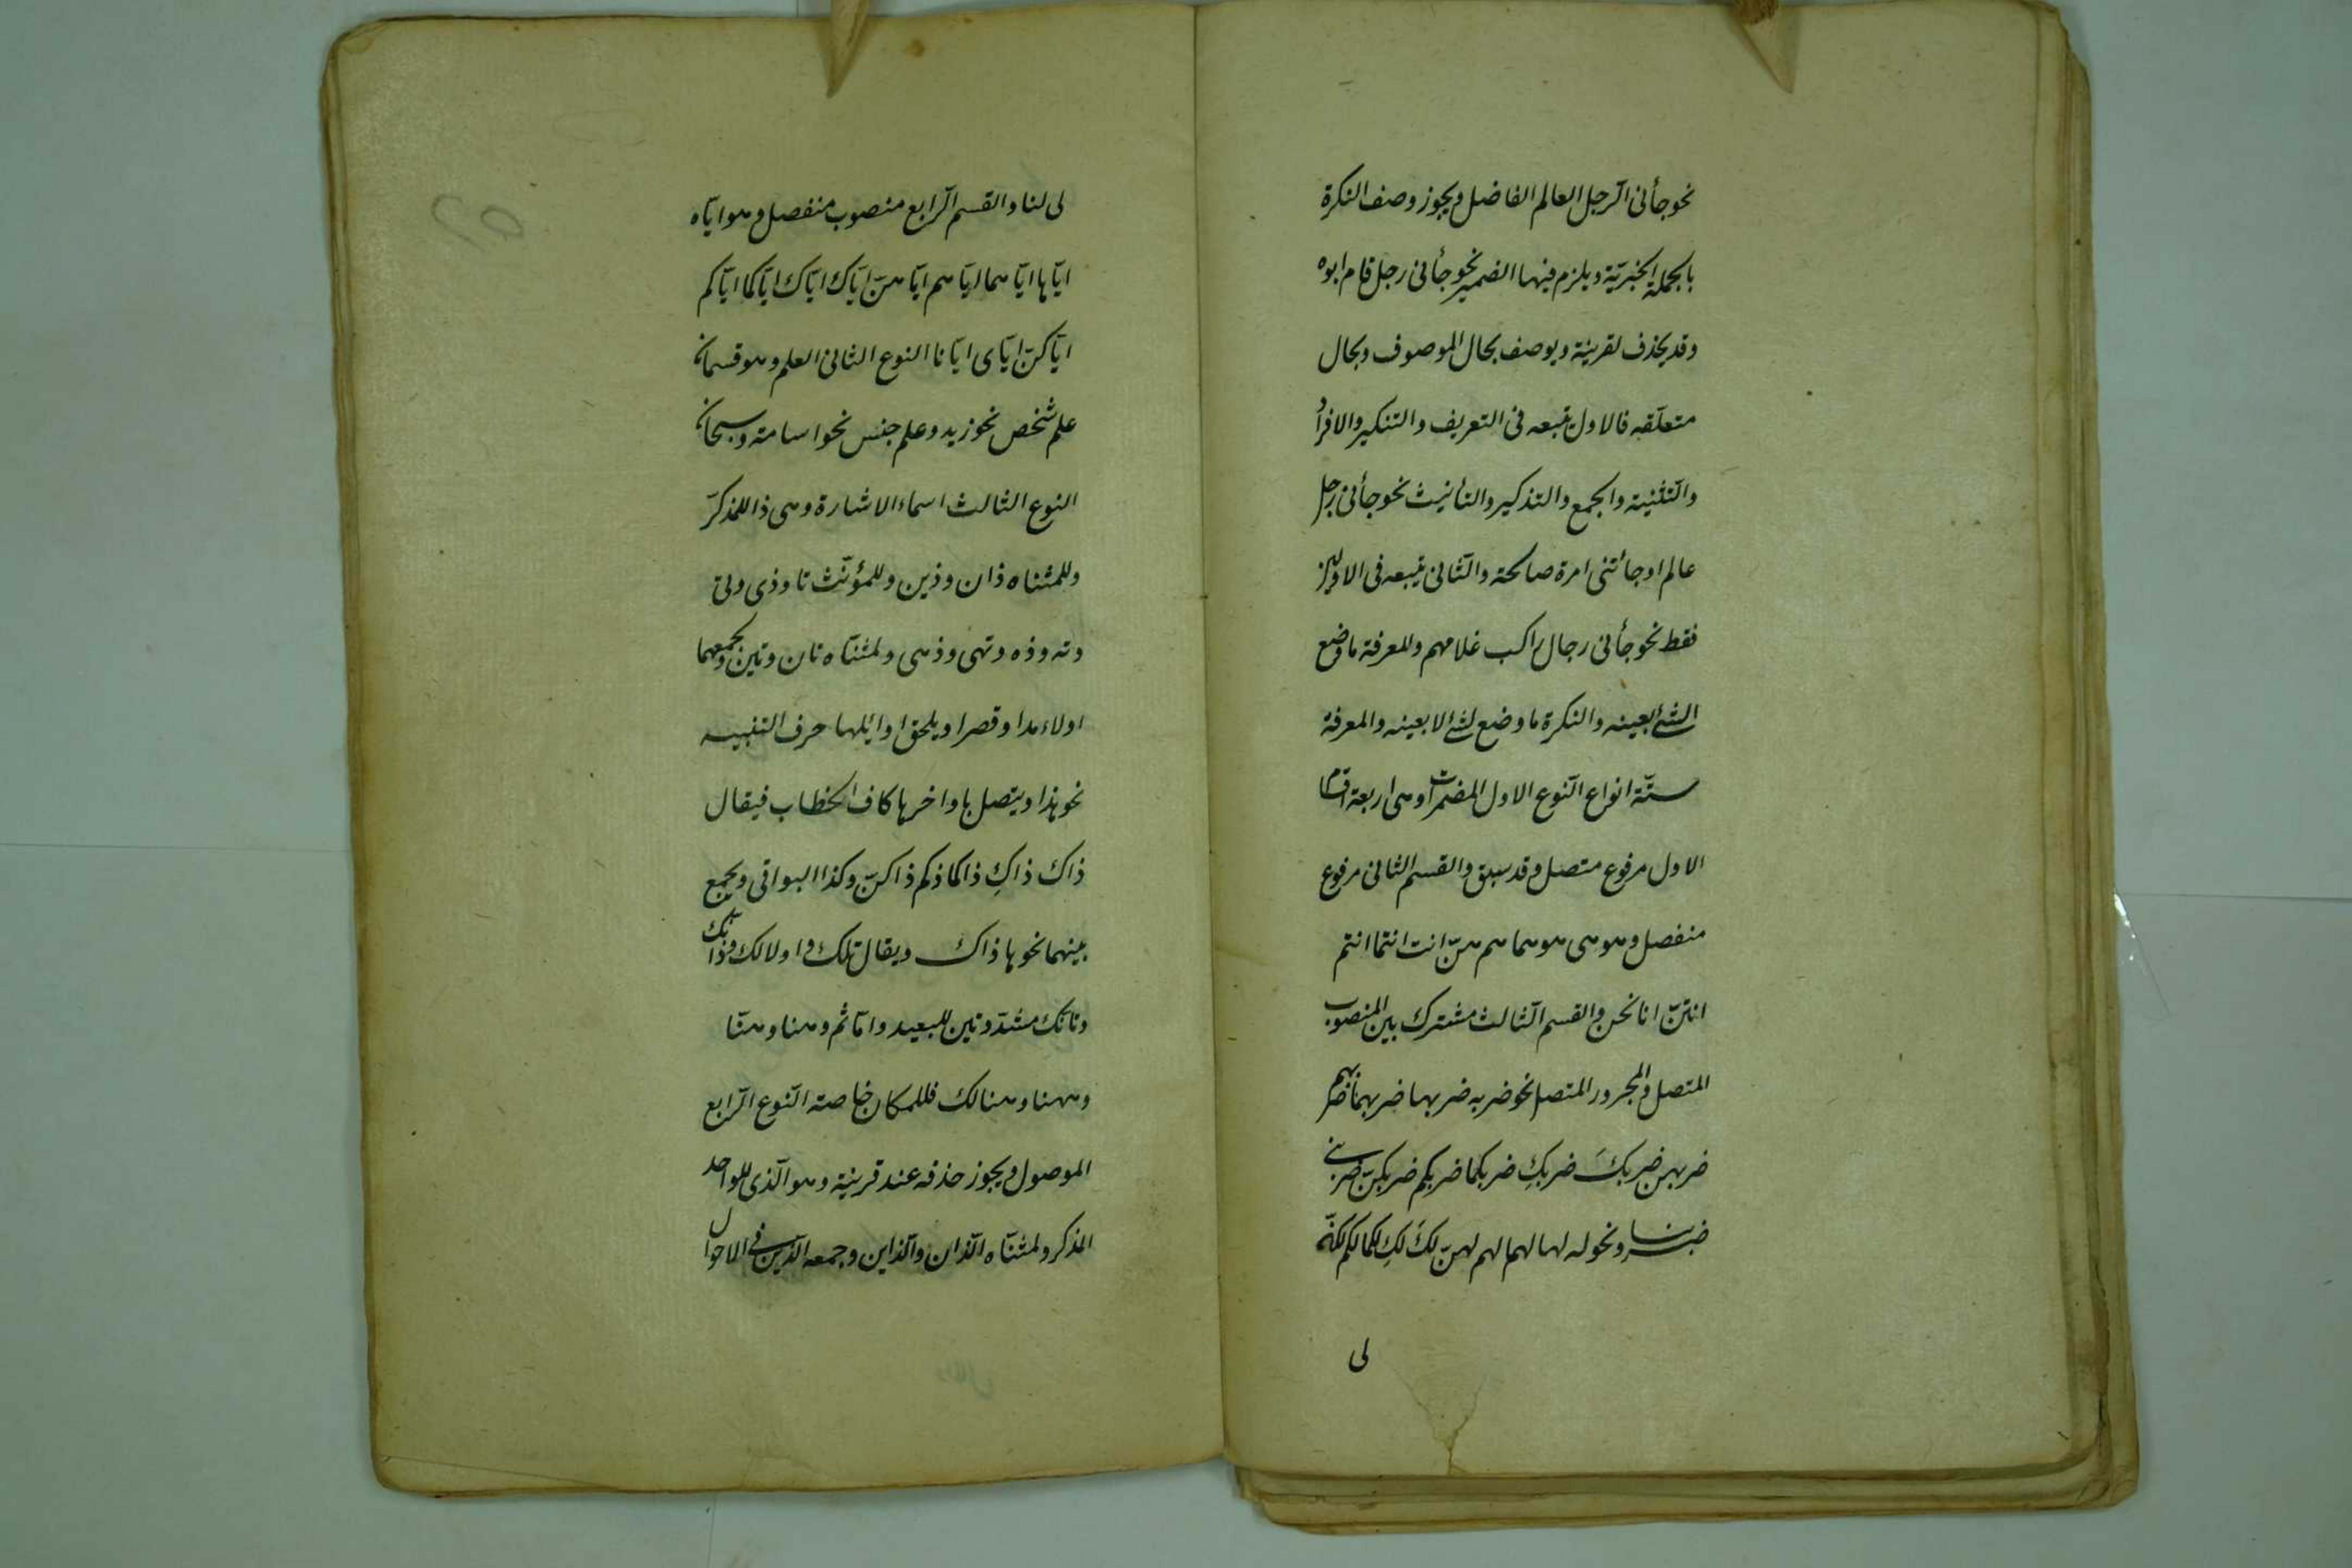 نحو جأنى الرّجل العالم الفاضل ويجوز وصف النكرة
بالجملة الخبريّة ويلزم فيها الضمير نحو جأنى رجل قام ابوه
وقد يحذف لقرينة ويوصف بحال الموصوف وبحال
متعلّقه فالاول يتبعه فى التعريف والتنكير والافراد
والتثنية والجمع والتذكير والتانيث نحو جأنى رجل
عالم او جائتنى امرة صالحة والثّانى يتبعه فى الاولين
فقط نحو جأنى رجال راكب غلامهم والمعرفة ما وضع
لشئ بعينه والنكرة ما وضع لشئ لا بعينه والمعرفة
ستّة انواع النّوع الاول المضمرات وهى اربعة اقسام
الاول مرفوع متصل وقد سبق والقسم الثانى مرفوع
منفصل وهو هى هو هما هم هنّ انت انتما انتم
انتنّ انا نحن والقسم الثّالث مشترك بين المنصوب
المتصل والمجرور المتصل نحو ضربه ضربها ضربهما ضربهم
ضربهن ضربكَ ضربكِ ضربكما ضربكم ضربكنّ ضربنى
ضربنا ونحو له لها لهما لهم لهنّ لكَ لكِ لكما لكم لكنّ
لى
لى لنا والقسم الرّابع منصوب منفصل وهو ايّاه
ايّاها ايّاهما ايّاهم ايّاهنّ ايّاك ايّاك ايّاكما ايّاكم
ايّاكنّ ايّاى ايّانا النوع الثانى العلم وهو قسمان
علم شخص نحو زيد وعلم جنس نحو اسامة وسبحان
النوع الثالث اسماء الاشارة وهى ذا للمذكرّ
وللمثناه ذان وذين وللمؤنّث تا وذى وتى
وته وذه وتهى وذهى ولمثنّاه تان وتين ولجمعهما
اولاء مدا وقصرا ويلحق اوائلها حرف التنبيه
نحو هذا ويتصل باواخرها كاف الخطاب فيقال
ذاكَ ذاكِ ذاكما ذاكم ذاكنّ وكذا البواقى ويجمع
بينهما نحو هاذاك ويقال تلك واولالك وذانّك
وتانّك مشدّدتين للبعيد وامّا ثم وهنا وهنّا
وههنا وهنالك فللمكان خاصة النّوع الرّابع
الموصول ويجوز حذفه عند قرينة وهو الّذى للواحد
المذكر ولمثنّاه الّذان والّذاين وجمعه الّذين فى الاحوال